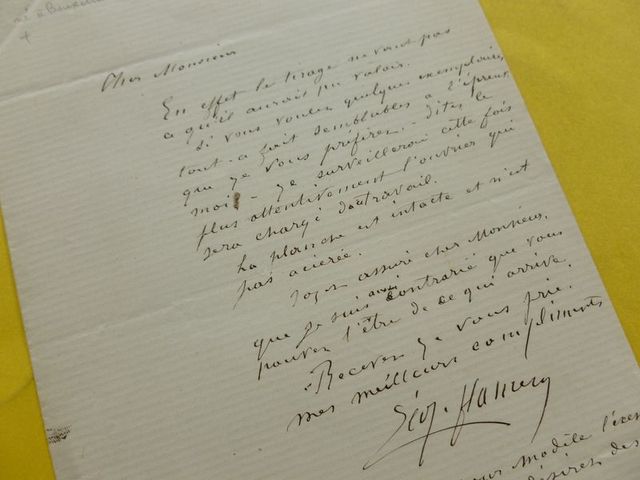 né à Bruxelles
+
Cher Monsieur
En effet le tirage ne vaut pas
ce qu'il aurait pu valoir.
Si vous voulez quelques exemplaires
tout-à-fait semblables à l'épreuve
que je vous préfère. - dites le
moi - je surveillerai cette fois
plus attentivement l'ouvrier qui
sera chargé du travail.
La planche est intacte et n'est
pas aciérée.
Soyez assuré cher Monsieur,
que je suis aussi contrarié que vous
pouvez l'être de ce qui arrive.
Recevez je vous prie
mes meilleurs compliments
modèle
désirez des